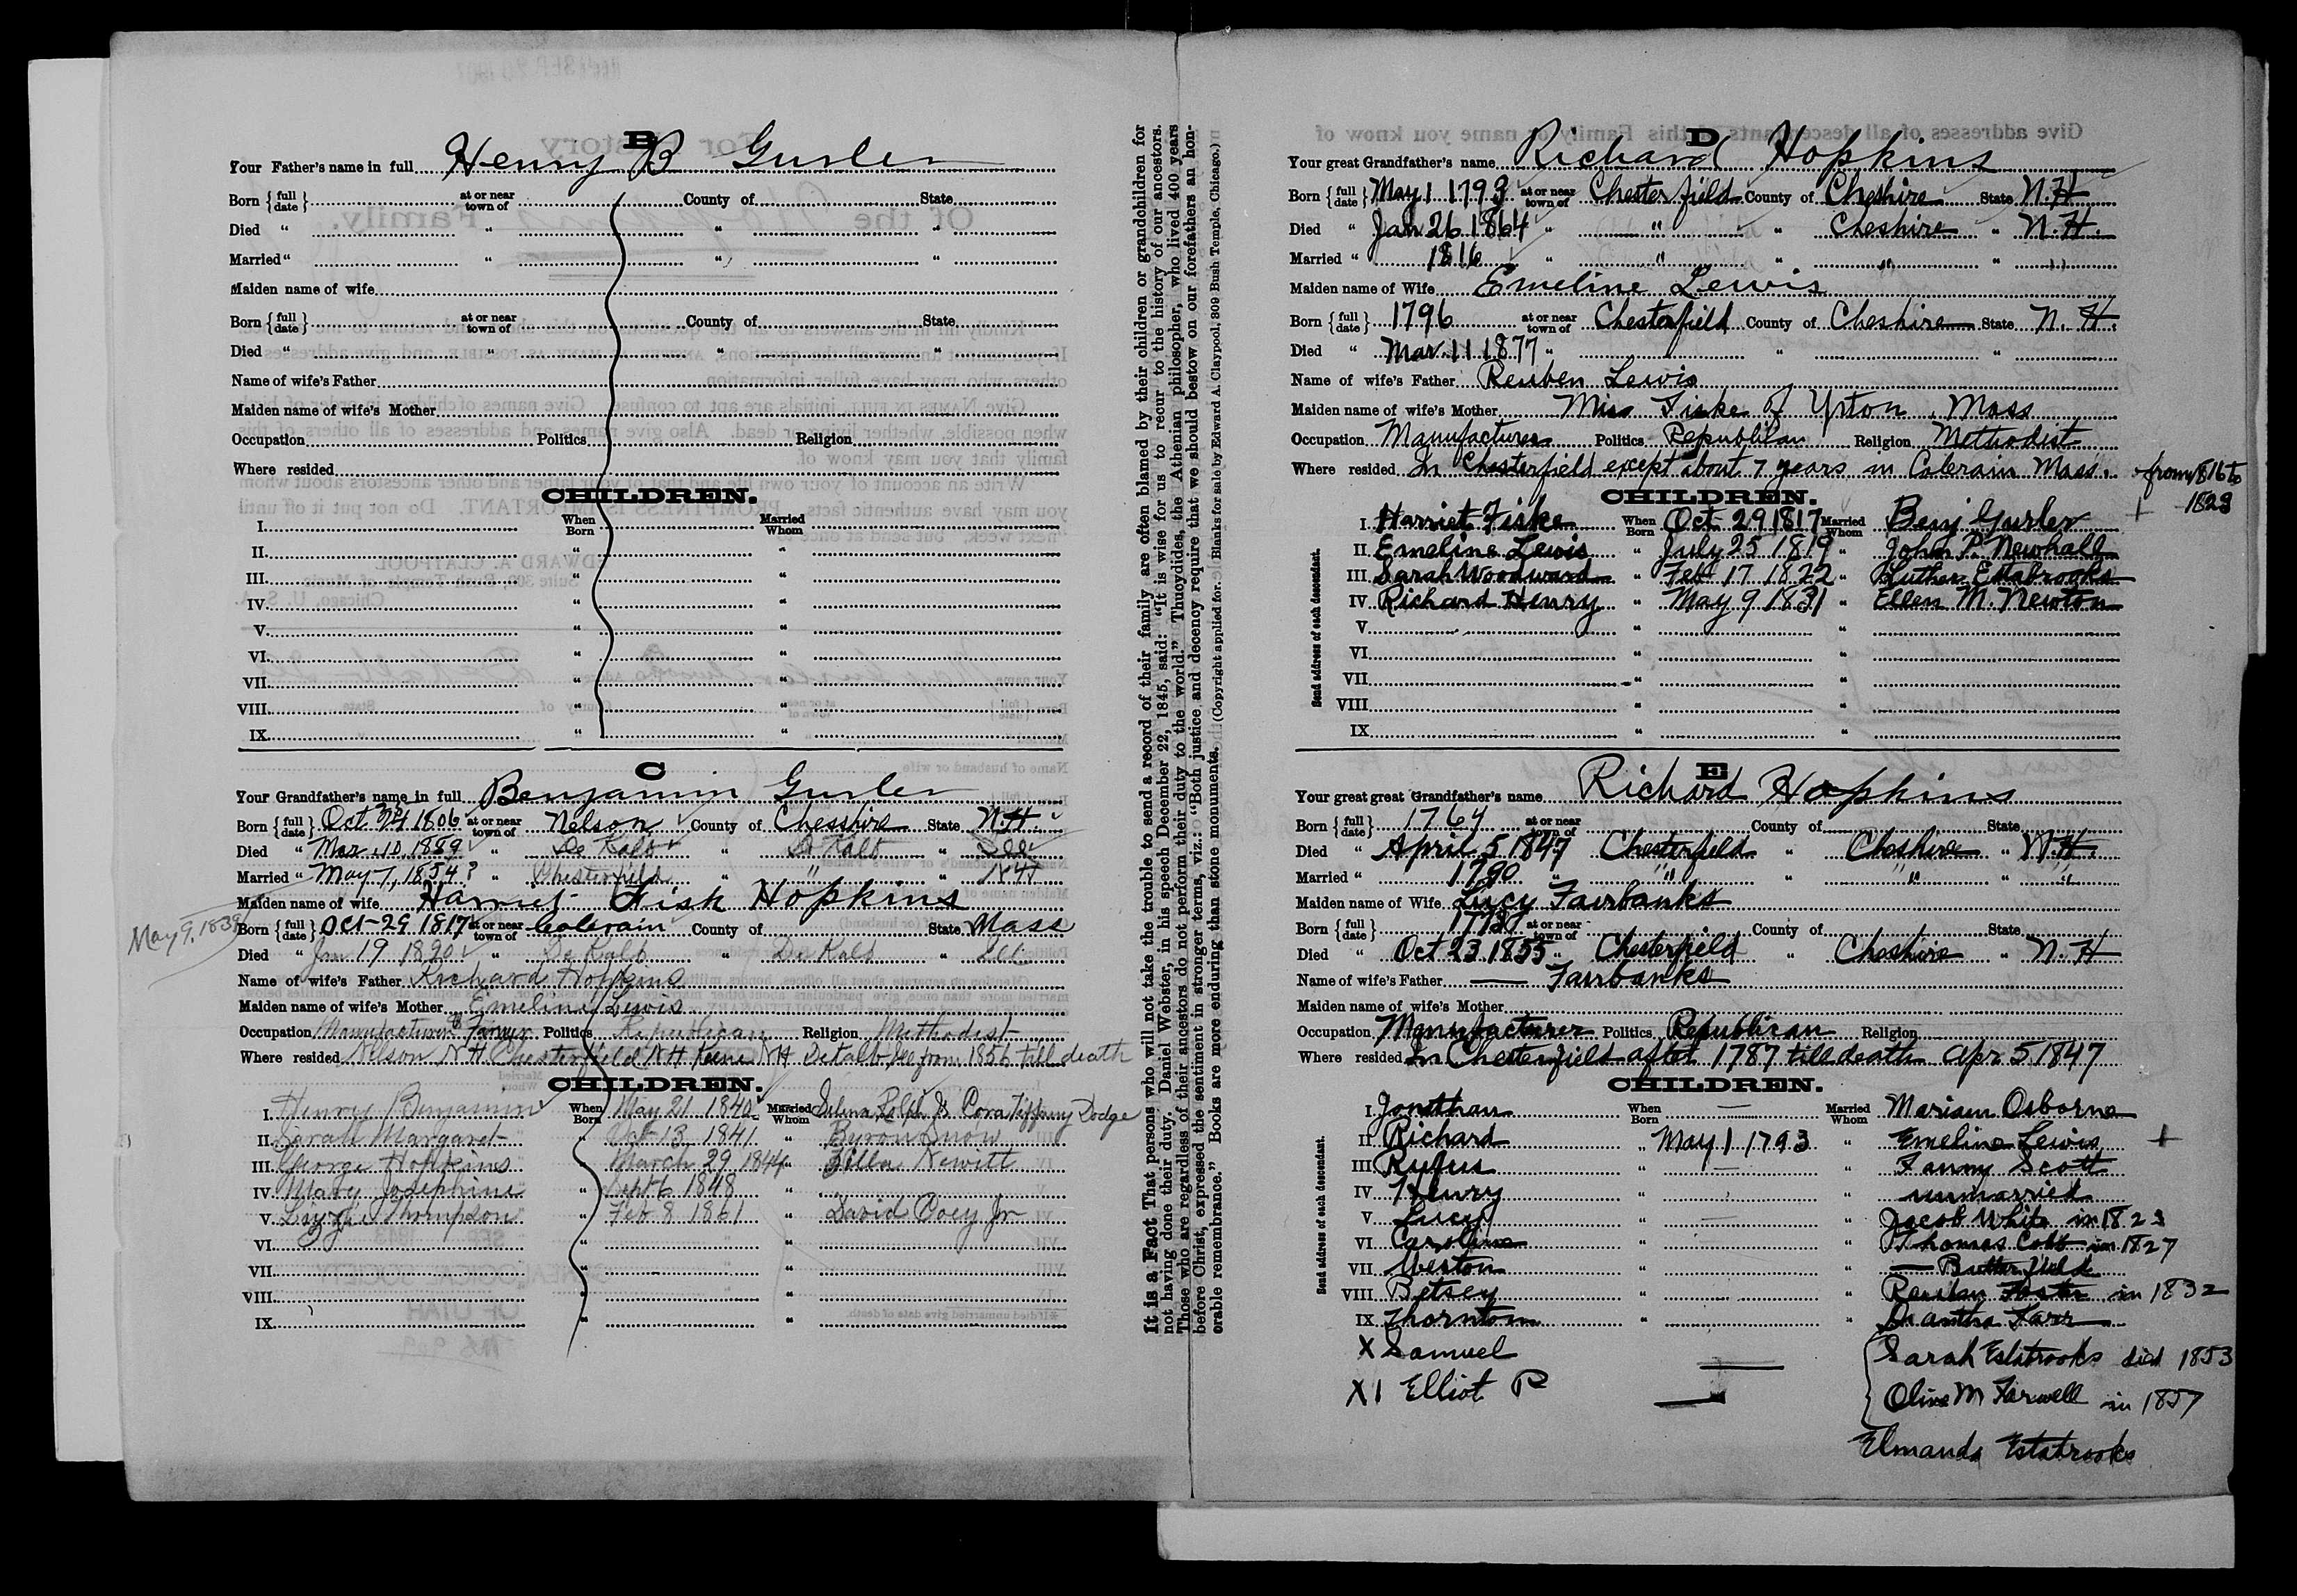 B
Your Father's name in full Henry B Gurler
Born {full date} at or near town of County of State
Died " " " "
Married " " " "
Maiden name of wife
Born {full date} at or near town of County of State
Died " " " "
Name of wife's Father
Maiden name of wife's Mother
Occupation Politics Religion
Where resided
CHILDREN.
I. When Born Married Whom
II. " "
III. " "
IV. " "
V. " "
VI. " "
VII. " "
VIII. " "
IX. " "
C
Your Grandfather's name in full Benjamin Gurler
Born {full date} Oct 1806 at or near town of Nelson County of Chesshire State N.H.
Died " Mar 10, 1889 " De Kalb " De Kalb " Ill
Married " May 7, 1854? " Chesterfield " " " N H
Maiden name of wife Harriet Fisk Hopkins
May 9, 1839
Born {full date} Oct-29 1817 at or near town of Colerain County of State Mass
Died " Jan 19 1890 " De Kalb " De Kalb " Ill.
Name of wife's Father Richard Hopkins
Maiden name of wife's Mother Emeline Lewis
Occupation Manufacturer & Farmer Politics Republican Religion Methodist
Where resided Nelson N H Chesterfield N H Keene N H Dekalb Ill from 1856 till death
CHILDREN.
I. Henry Benjamin When Born May 21 1840 Married Whom Selina Rolph & Cora Tiffany Dodge
II. Sarah Margaret " Oct 13 1841 " Byron Snow
III. George Hopkins " March 29 1844 " Zilla Newitt
IV. Mary Josephine " Sept 6 1848 "
V. Lizzie Thompson " Feb 8 1861 " David Coey Jr
VI. " "
VII. " "
VIII. " "
IX. " "
It is a Fact That persons who will not take the trouble to send a record of their family are often blamed by their children or grandchildren for
not having done their duty. Daniel Webster, in his speech December 22, 1845, said: "It is wise for us to recur to the history of our ancestors.
Those who are regardless of their ancestors do not perform their duty to the world." Thucydides, the Athenian philosopher, who lived 400 years
before Christ, expressed the sentiment in stronger terms, viz.: "Both justice and decency require that we should bestow on our forefathers an hon-
orable remembrance." Books are more enduring than stone monuments. (Copyright applied for. Blanks for sale by Edward A. Claypool, 309 Bush Temple, Chicago.)
D
Your great Grandfather's name Richard Hopkins
Born {full date} May 1 1793 at or near town of Chesterfield County of Cheshire State N.H
Died " Jan 26 1864 " " " Cheshire " N.H.
Married " 1816 " " " " " "
Maiden name of Wife Emeline Lewis
Born {full date} 1796 at or near town of Chesterfield County of Cheshire State N. H.
Died " Mar. 11 1877 " " "
Name of wife's Father Reuben Lewis
Maiden name of wife's Mother Miss Fiske of Upton Mass
Occupation Manufacturer Politics Republican Religion Methodist
Where resided In Chesterfield except about 7 years in Colerain Mass. from 1816 to
1823
CHILDREN.
I. Harriet Fiske When Born Oct 29 1817 Married Whom Benj Gurler +
II. Emeline Lewis " July 25 1819 " John P. Newhall
III. Sarah Woodward " Feb 17 1822 " Luther Estabrooks
IV. Richard Henry " May 9 1831 " Ellen M. Newton
V. " "
VI. " "
VII. " "
VIII. " "
IX. " "
Send address of each descendant.
E
Your great great Grandfather's name Richard Hopkins
Born {full date} 1764 at or near town of County of State
Died " April 5 1847 Chesterfield " Cheshire " N.H.
Married " 1790 " " " " " "
Maiden name of Wife Lucy Fairbanks
Born {full date} at or near town of County of State
Died " Oct 23 1855 " Chesterfield " Cheshire " N. H
Name of wife's Father — Fairbanks
Maiden name of wife's Mother
Occupation Manufacturer Politics Republican Religion
Where resided In Chesterfield after 1787 till death Apr 5 1847
CHILDREN.
I. Jonathan When Born — Married Whom Mariam Osborne
II Richard " May 1 1793 " Emeline Lewis +
III Rufus " — " Fanny Scott
IV Henry " " unmarried
V Lucy " — " Jacob White in 1823
VI Caroline " — " Thomas Cobb in 1827
VII Weston " " — Butterfield
VIII Betsey " " Foster in 1832
IX Thornton " " Farr
X Samuel — { Sarah Estabrooks died 1853
Olive M Farwell in 1857
XI Elliot P —
Elmanda Estabrooks
Send address of each descendant.